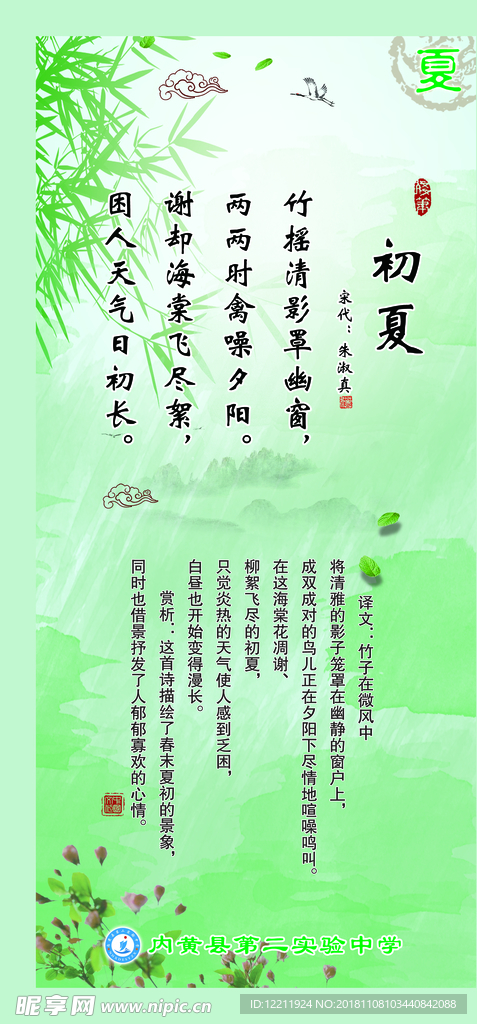 夏
初夏
宋代：朱淑真
竹摇清影罩幽窗，
两两时禽噪夕阳。
谢却海棠飞尽絮，
困人天气日初长。
译文：竹子在微风中
将清雅的影子笼罩在幽静的窗户上，
成双成对的鸟儿正在夕阳下尽情地喧噪鸣叫。
在这海棠花凋谢、
柳絮飞尽的初夏，
只觉炎热的天气使人感到乏困，
白昼也开始变得漫长。
赏析：这首诗描绘了春末夏初的景象，
同时也借景抒发了人郁郁寡欢的心情。
内黄县第二实验中学
昵享网 www.nipic.cn
ID:12211924 NO:20181108103440842088